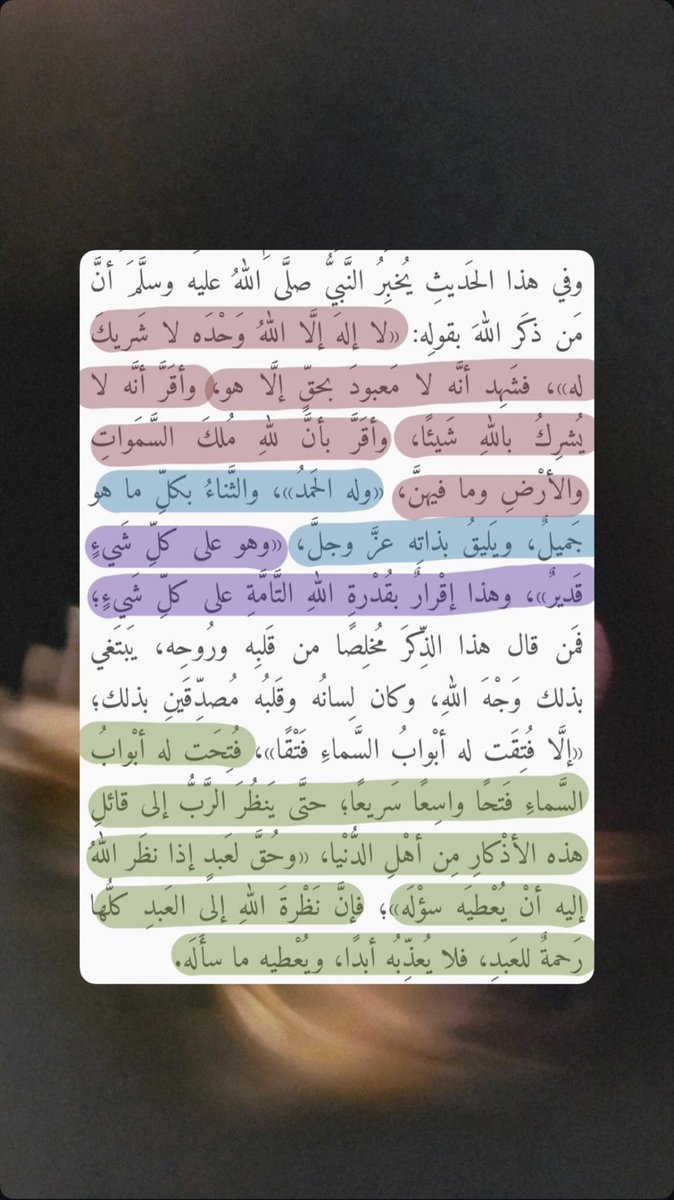 وفي هذا الحَديثِ يُخبِرُ النَّبيُّ صلَّى اللهُ عليه وسلَّمَ أنَّ
مَن ذكَر اللهَ بقولِه: «لا إلهَ إلَّا اللهُ وَحْدَه لا شَريكَ
له»، فشَهِد أنَّه لا مَعبودَ بحقٍّ إلَّا هو، وأقَرَّ أنَّه لا
يُشرِكُ باللهِ شَيئًا، وأقَرَّ بأنَّ للهِ مُلكَ السَّمَواتِ
والأرْضِ وما فيهنَّ، «وله الحَمدُ»، والثَّناءُ بكلِّ ما هو
جَميلٌ، ويَليقُ بذاتِه عزَّ وجلَّ، «وهو على كلِّ شَيءٍ
قَديرٌ»، وهذا إقْرارٌ بقُدْرةِ اللهِ التَّامَّةِ على كلِّ شَيءٍ؛
فمَن قال هذا الذِّكرَ مُخلِصًا من قَلبِه ورُوحِه، يَبتَغي
بذلك وَجْهَ اللهِ، وكان لِسانُه وقَلبُه مُصدِّقَينِ بذلك؛
«إلَّا فُتِقَت له أبْوابُ السَّماءِ فَتْقًا»، فُتِحَت له أبْوابُ
السَّماءِ فَتحًا واسِعًا سَريعًا؛ حتَّى يَنظُرَ الرَّبُّ إلى قائلِ
هذه الأذْكارِ مِن أهْلِ الدُّنْيا، «وحُقَّ لعَبدٍ إذا نظَر اللهُ
إليه أنْ يُعْطيَه سؤْلَه»؛ فإنَّ نَظْرةَ اللهِ إلى العَبدِ كلُّها
رَحمةٌ للعَبدِ، فلا يُعذِّبُه أبدًا، ويُعْطيه ما سأَلَه.